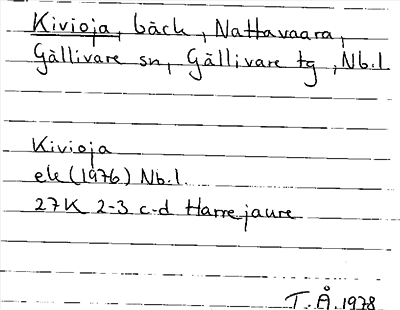 Kivioja, bäck, Nattavaara,
Gällivare sn, Gällivare tg, Nb.l
Kivioja
ek (1976) Nb.l.
27K 2-3 c-d Harrejaure
T.Å. 1978